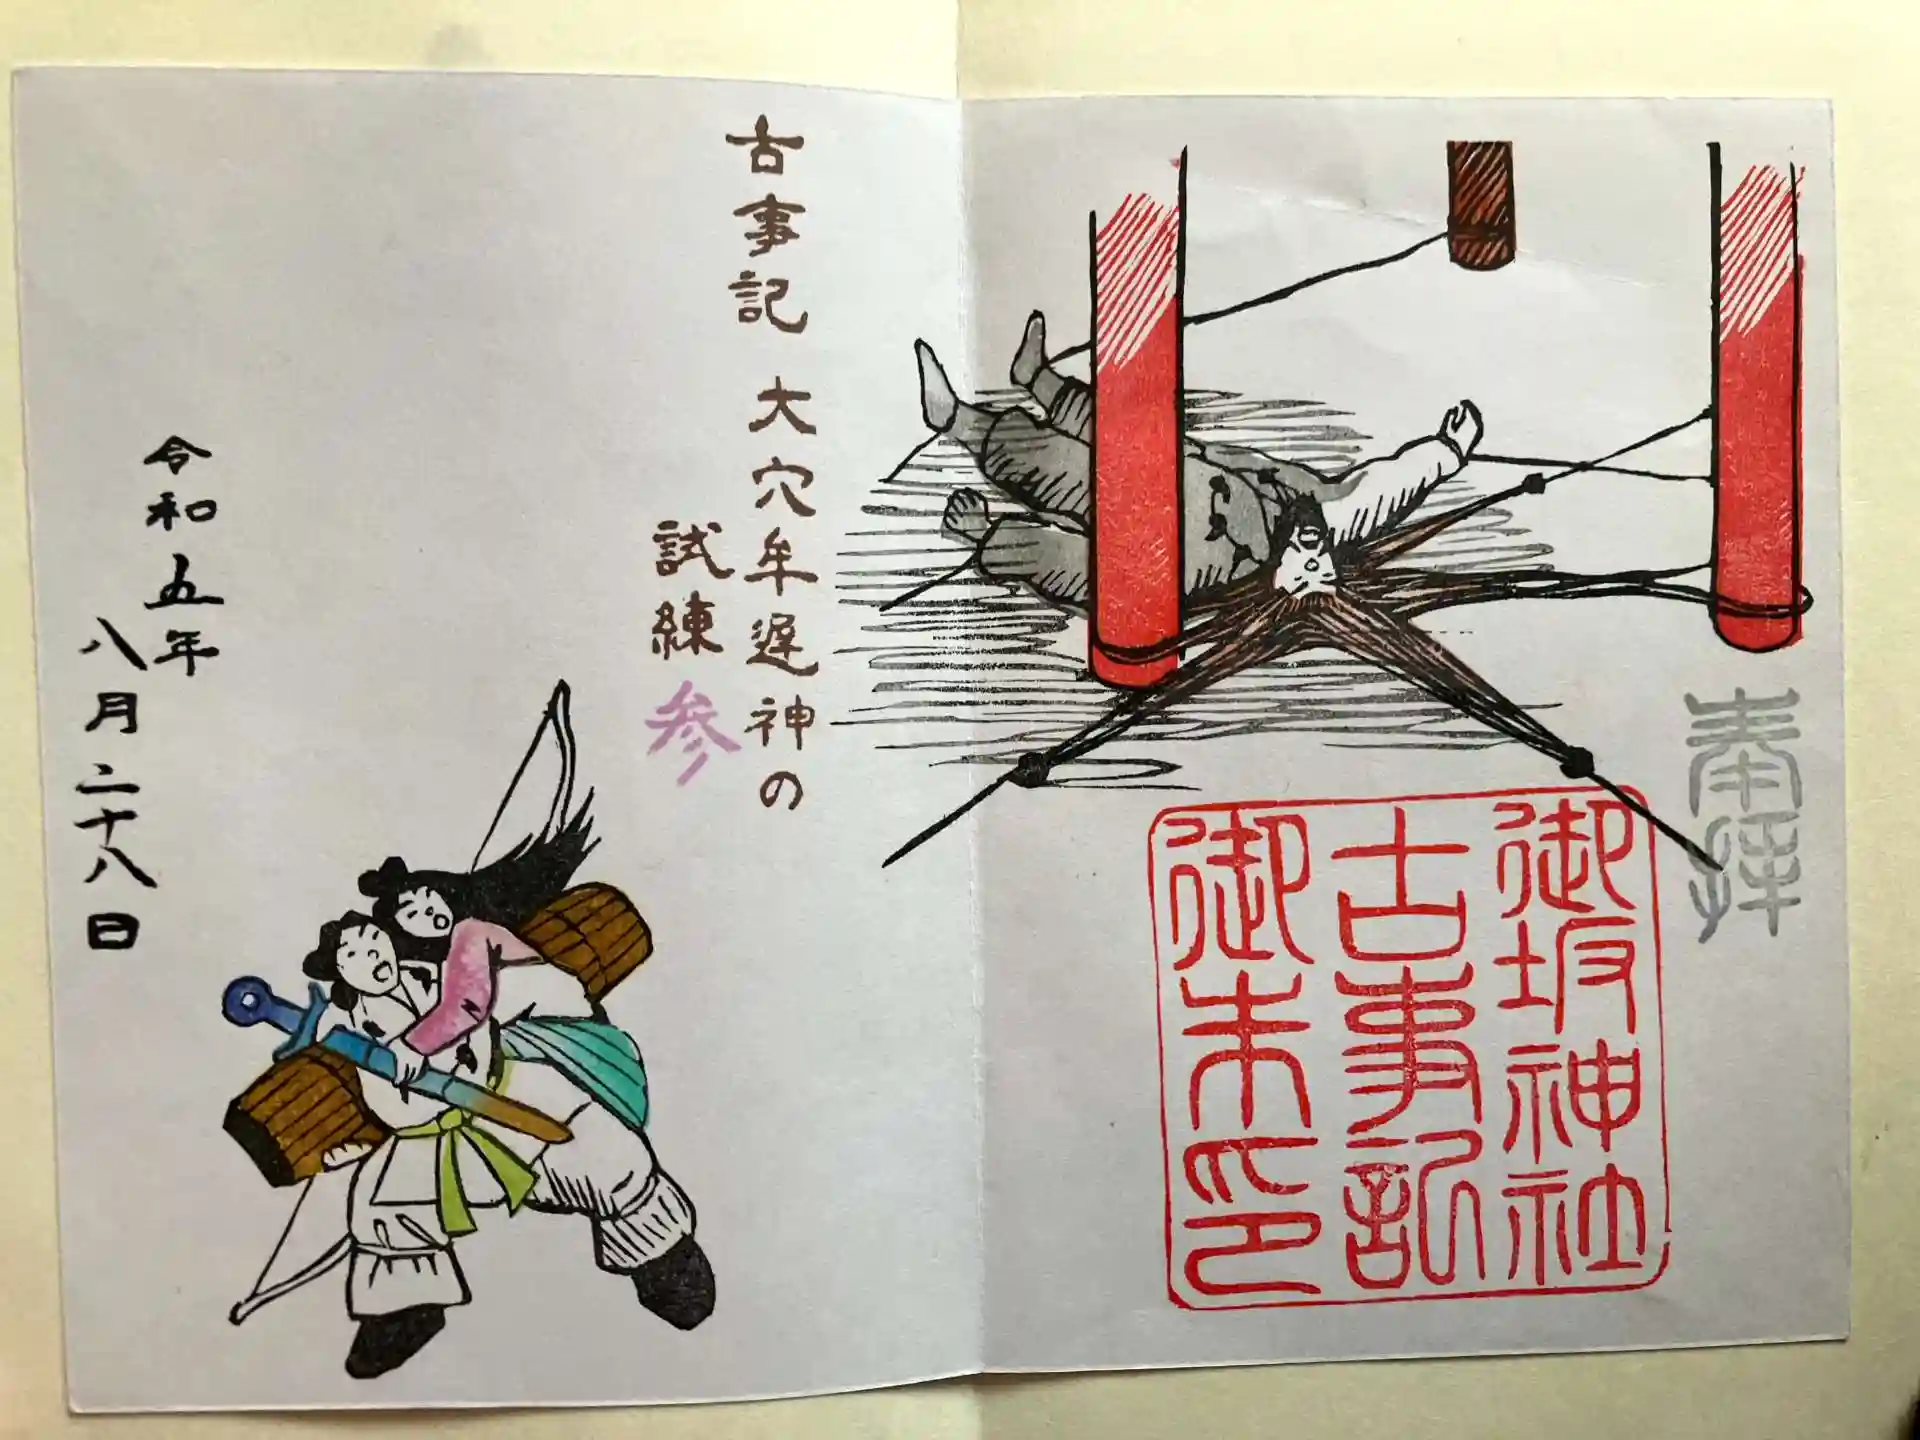 奉拝
御坂神社
古事記
御朱印
古事記 大穴牟遅神の
試練 参
令和五年
八月二十八日